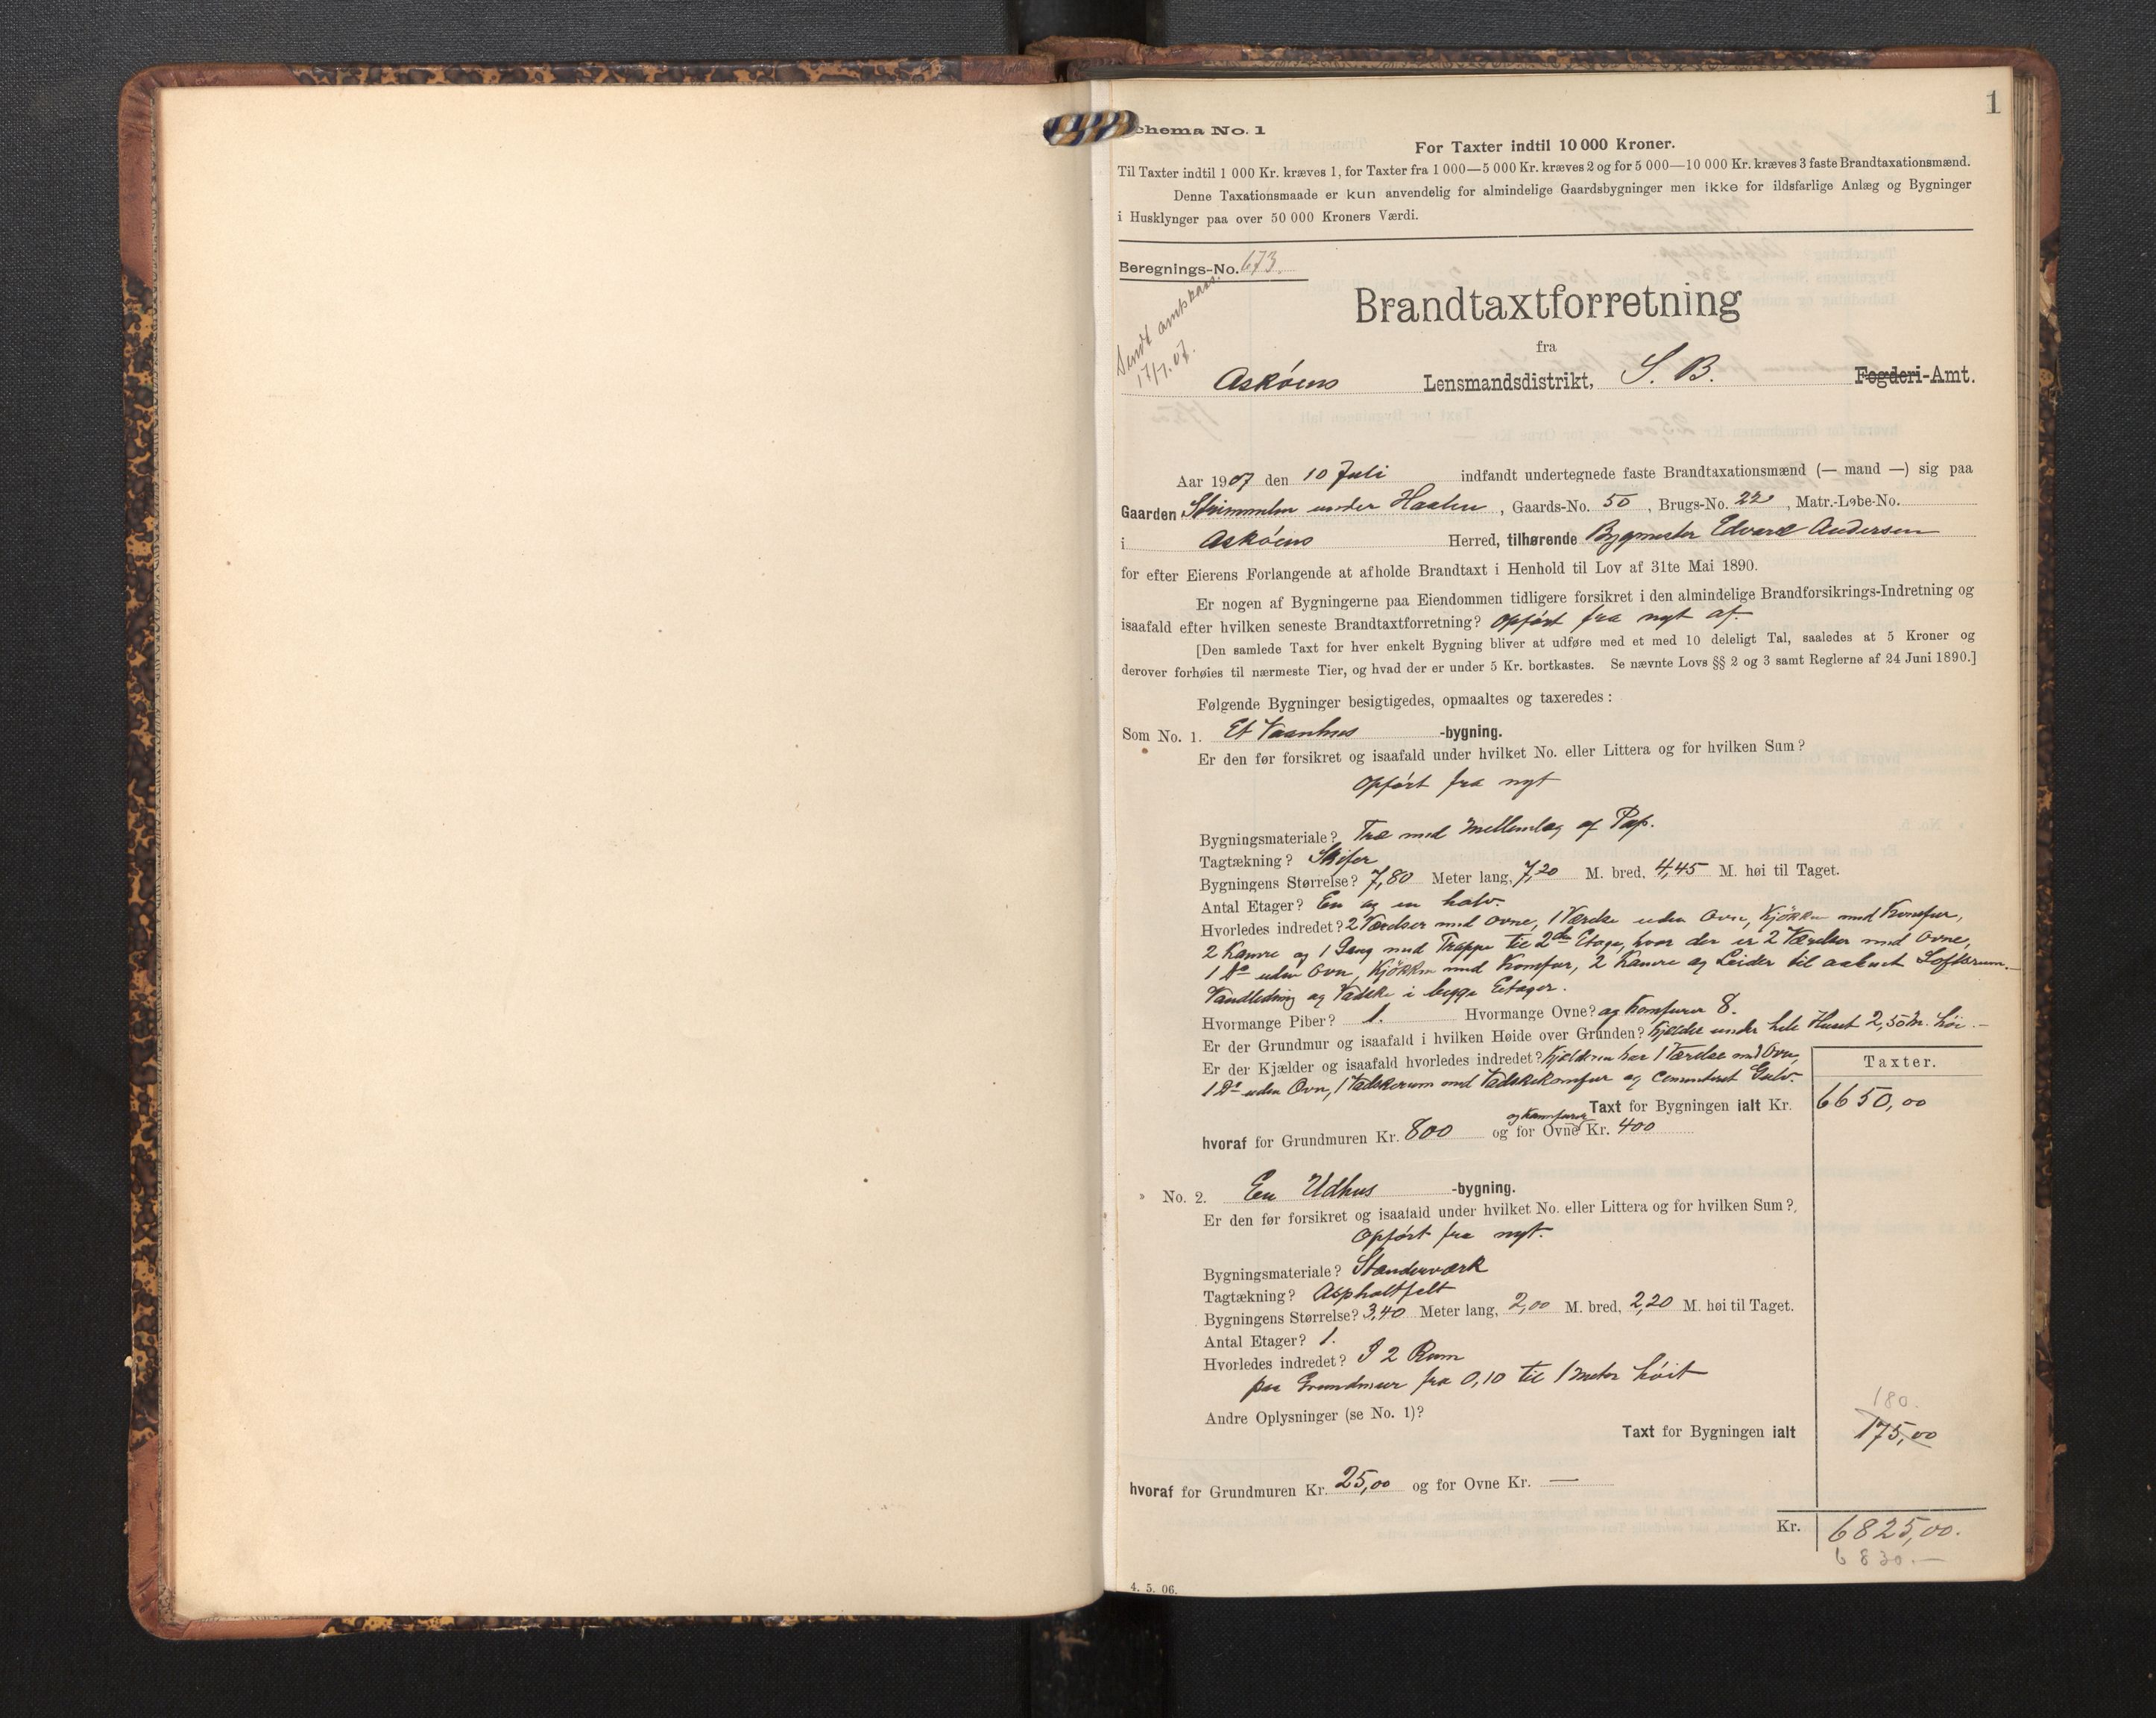 1
chema No. 1
For Taxter indtil 10 000 Kroner.
Til Taxter indtil 1 000 Kr. kræves 1, for Taxter fra 1 000—5 000 Kr. kræves 2 og for 5 000—10 000 Kr. kræves 3 faste Brandtaxationsmænd.
Denne Taxationsmaade er kun anvendelig for almindelige Gaardsbygninger men ikke for ildsfarlige Anlæg og Bygninger
i Husklynger paa over 50 000 Kroners Værdi.
Beregnings-No. 673.
Sendt amtskass.
17/7.07.
Brandtaxtforretning
fra
Askøens Lensmandsdistrikt, S. B. Fogderi-Amt.
Aar 1907 den 10 Juli indfandt undertegnede faste Brandtaxationsmænd (— mand —) sig paa
Gaarden under , Gaards-No. 50 , Brugs-No. 22 , Matr.-Løbe-No.
i Askøens Herred, tilhørende Bygmester Edvard Andersen
for efter Eierens Forlangende at afholde Brandtaxt i Henhold til Lov af 31te Mai 1890.
Er nogen af Bygningerne paa Eiendommen tidligere forsikret i den almindelige Brandforsikrings-Indretning og
isaafald efter hvilken seneste Brandtaxtforretning? Opført fra nyt af.
[Den samlede Taxt for hver enkelt Bygning bliver at udføre med et med 10 deleligt Tal, saaledes at 5 Kroner og
derover forhøies til nærmeste Tier, og hvad der er under 5 Kr. bortkastes. Se nævnte Lovs §§ 2 og 3 samt Reglerne af 24 Juni 1890.]
Følgende Bygninger besigtigedes, opmaaltes og taxeredes :
Som No. 1. Et Vaanhus -bygning.
Er den før forsikret og isaafald under hvilket No. eller Littera og for hvilken Sum?
Opført fra nyt
Bygningsmateriale? Træ med Mellemlæg af Pap.
Tagtækning? Skifer
Bygningens Størrelse? 7,80 Meter lang, 7,20 M. bred, 4,45 M. høi til Taget.
Antal Etager? En og en halv.
Hvorledes indredet? 2 Værelser med Ovne, 1 Værelse uden Ovn, Kjøkken med Komfur,
2 Kamre og 1 Gang med Trappe til 2den Etage, hvor der er 2 Værelser med Ovne,
1 Do uden Ovn, Kjøkken med Komfur, 2 Kamre og Leider til aabent Loftsrum.—
Vandledning og Vadske i begge Etager.
Hvormange Piber? 1. Hvormange Ovne? og Komfurer 8.
Er der Grundmur og isaafald i hvilken Høide over Grunden? Kjelder under hele Huset 2,50 M. høi.—
Er der Kjælder og isaafald hvorledes indredet? Kjelderen har 1 Værelse med Ovn,
1 Do uden Ovn, 1 Vadskerum med Vadskekomfur og Cementeret Gulv.
Taxter.
Taxt for Bygningen ialt Kr. 6650,00
og Komfurer
hvoraf for Grundmuren Kr. 800 og for Ovne Kr. 400
» No. 2. En Udhus -bygning.
Er den før forsikret og isaafald under hvilket No. eller Littera og for hvilken Sum?
Opført fra nyt.
Bygningsmateriale? Standerværk
Tagtækning? Asphaltfelt
Bygningens Størrelse? 3,40 Meter lang, 2,00 M. bred, 2,20 M. høi til Taget.
Antal Etager? 1.
Hvorledes indredet? I 2 Rum
paa Grundmur fra 0,10 til 1 Meter høit
Andre Oplysninger (se No. 1)?
180.
Taxt for Bygningen ialt 175,00
hvoraf for Grundmuren Kr. 25,00 og for Ovne Kr. —
Kr. 6825,00.
6830.—
4. 5. 06.